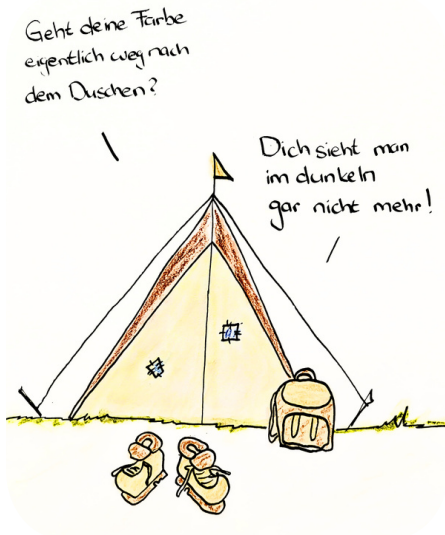 Geht deine Farbe
eigentlich weg nach
dem Duschen?
Dich sieht man
im dunkeln
gar nicht mehr!